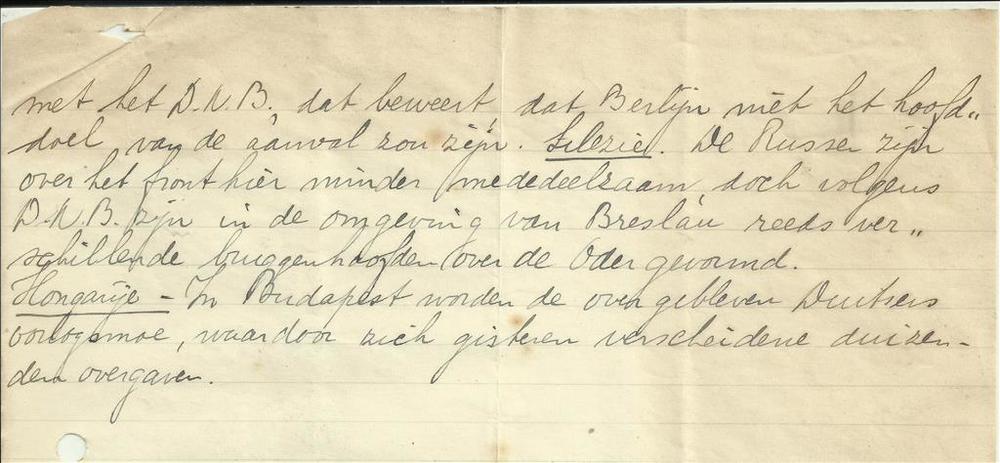 met het D.N.B. dat beweert, dat Berlijn niet het hoofd„
doel van de aanval zou zijn. Silezie. De Russen zijn
over het front hier minder mededeelzaam doch volgens
D.N.B. zijn in de omgeving van Breslau reeds ver„
schillende bruggenhoofden over de Oder gevormd.
Hongarije - In Budapest worden de overgebleven Duitsers
oorlogsmoe, waardoor zich gisteren verscheidene duizen-
den overgaven.